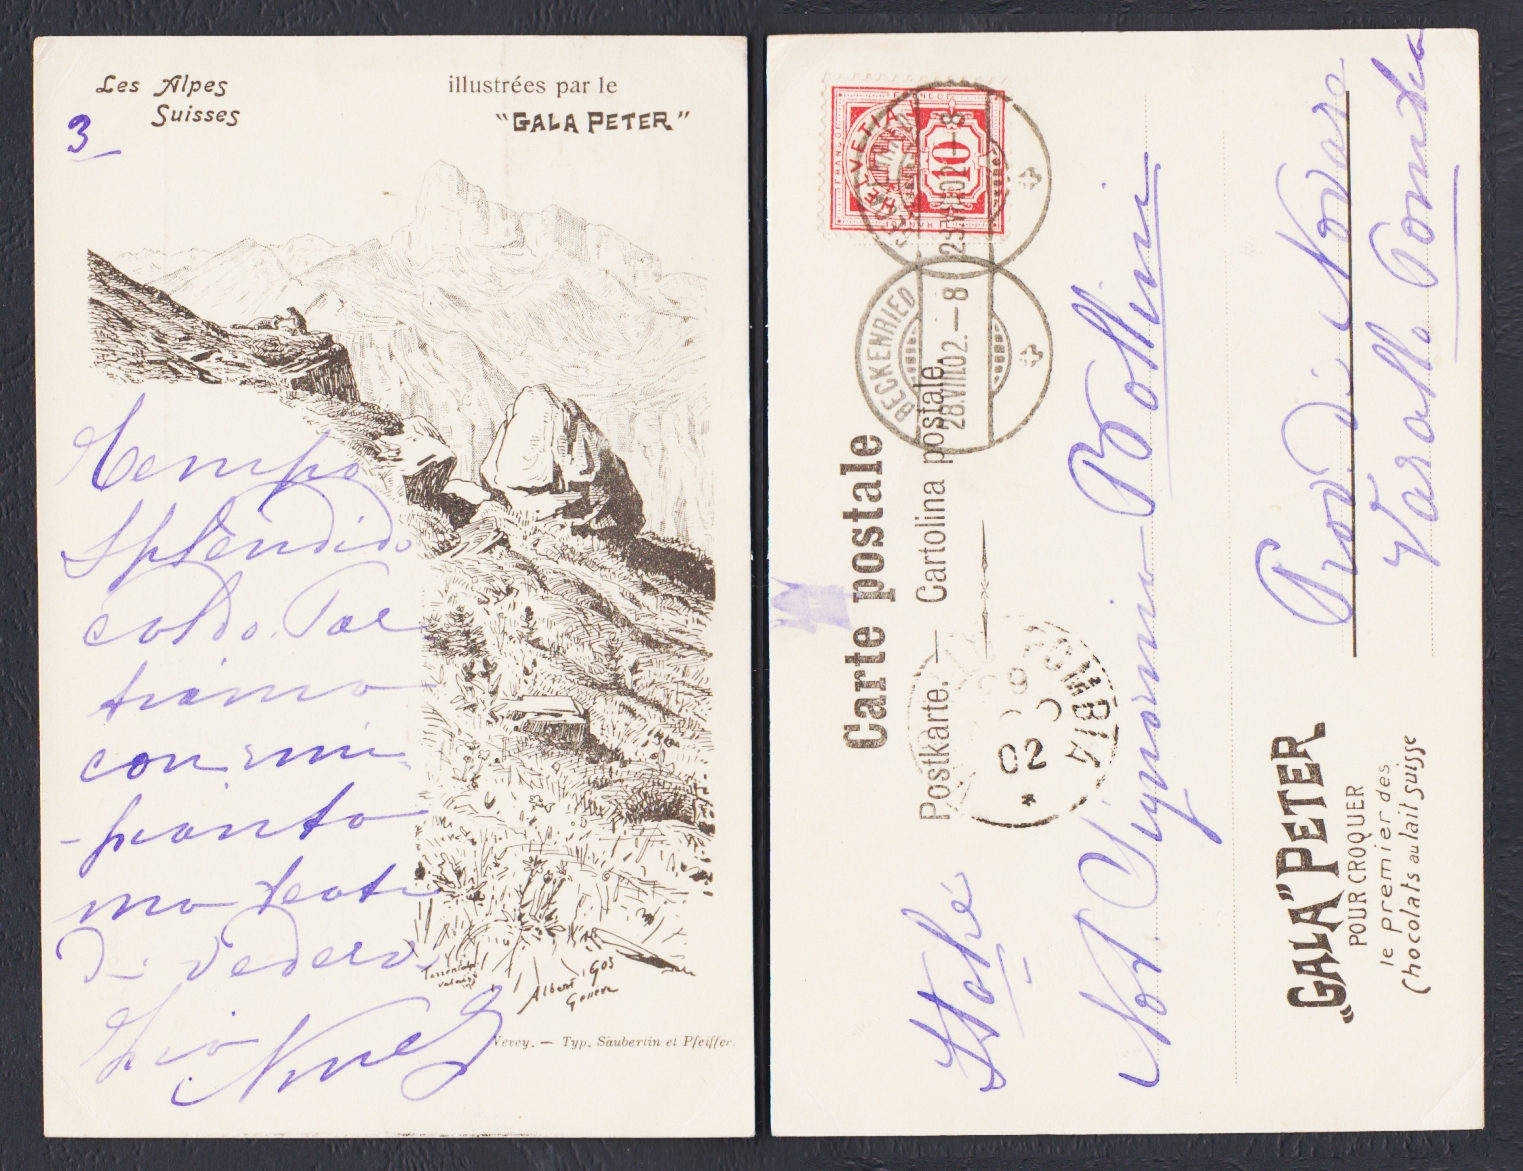 Les Alpes
Suisses
illustrées par le
"GALA PETER"
3
Tempo
splendido
caldo. Par
tiamo
con rim
pianto
ma beati
di vederci
Zio
Albert Gos
Genève
Vevey. — Typ. Säuberlin et Pfeiffer.
HELVETIA
FRANCO
10
BECKENRIED
28.VIII.02.–8
BECKENRIED
28.VIII.02.–8
Carte postale
Postkarte. — Cartolina postale.
02
POMBIA
Italie
Not. Signorino Bollini
Prov. di Novara
Varallo Pombia
„GALA" PETER
POUR CROQUER
le Premier des
Chocolats au lait Suisse